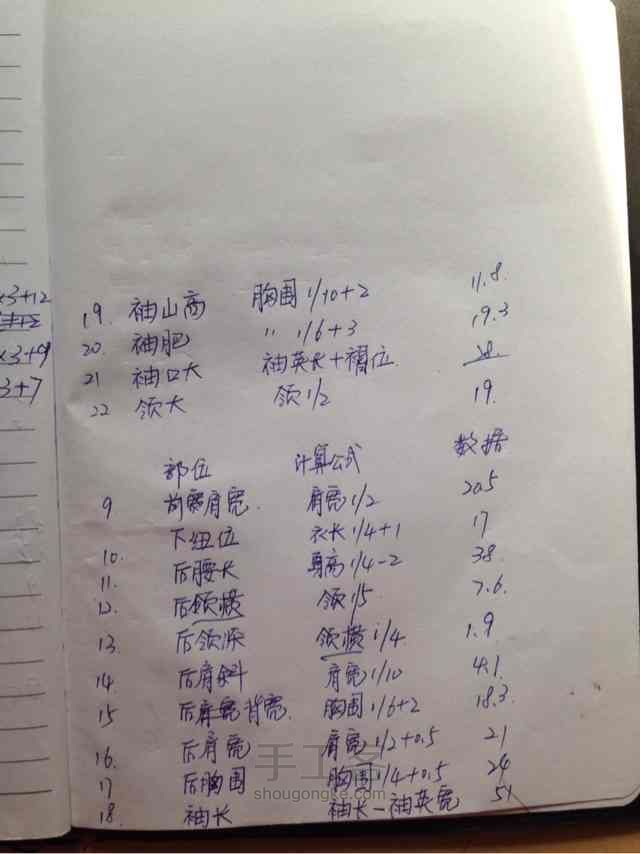 ×3+12
×3+9
3+7
19. 袖山高 胸围1/10+2 11.8.
20. 袖肥 〃 1/6+3 19.3
21 袖口大 袖英长+褶位.
22 领大 领1/2 19.
部位 计算公式 数据
9 前宽肩宽. 肩宽1/2 20.5
10. 下纽位 衣长1/4+1 17
11. 后腰长 身高1/4-2 38
12. 后领横 领1/5 7.6.
13. 后领深 领横1/4 1.9
14 后肩斜 肩宽1/10 4.1
15 后背宽. 胸围1/6+2 18.3
16. 后肩宽 肩宽1/2+0.5 21
17 后胸围 胸围1/4+0.5 24
18. 袖长 袖长-袖英宽 51
手工客
shougongke.com